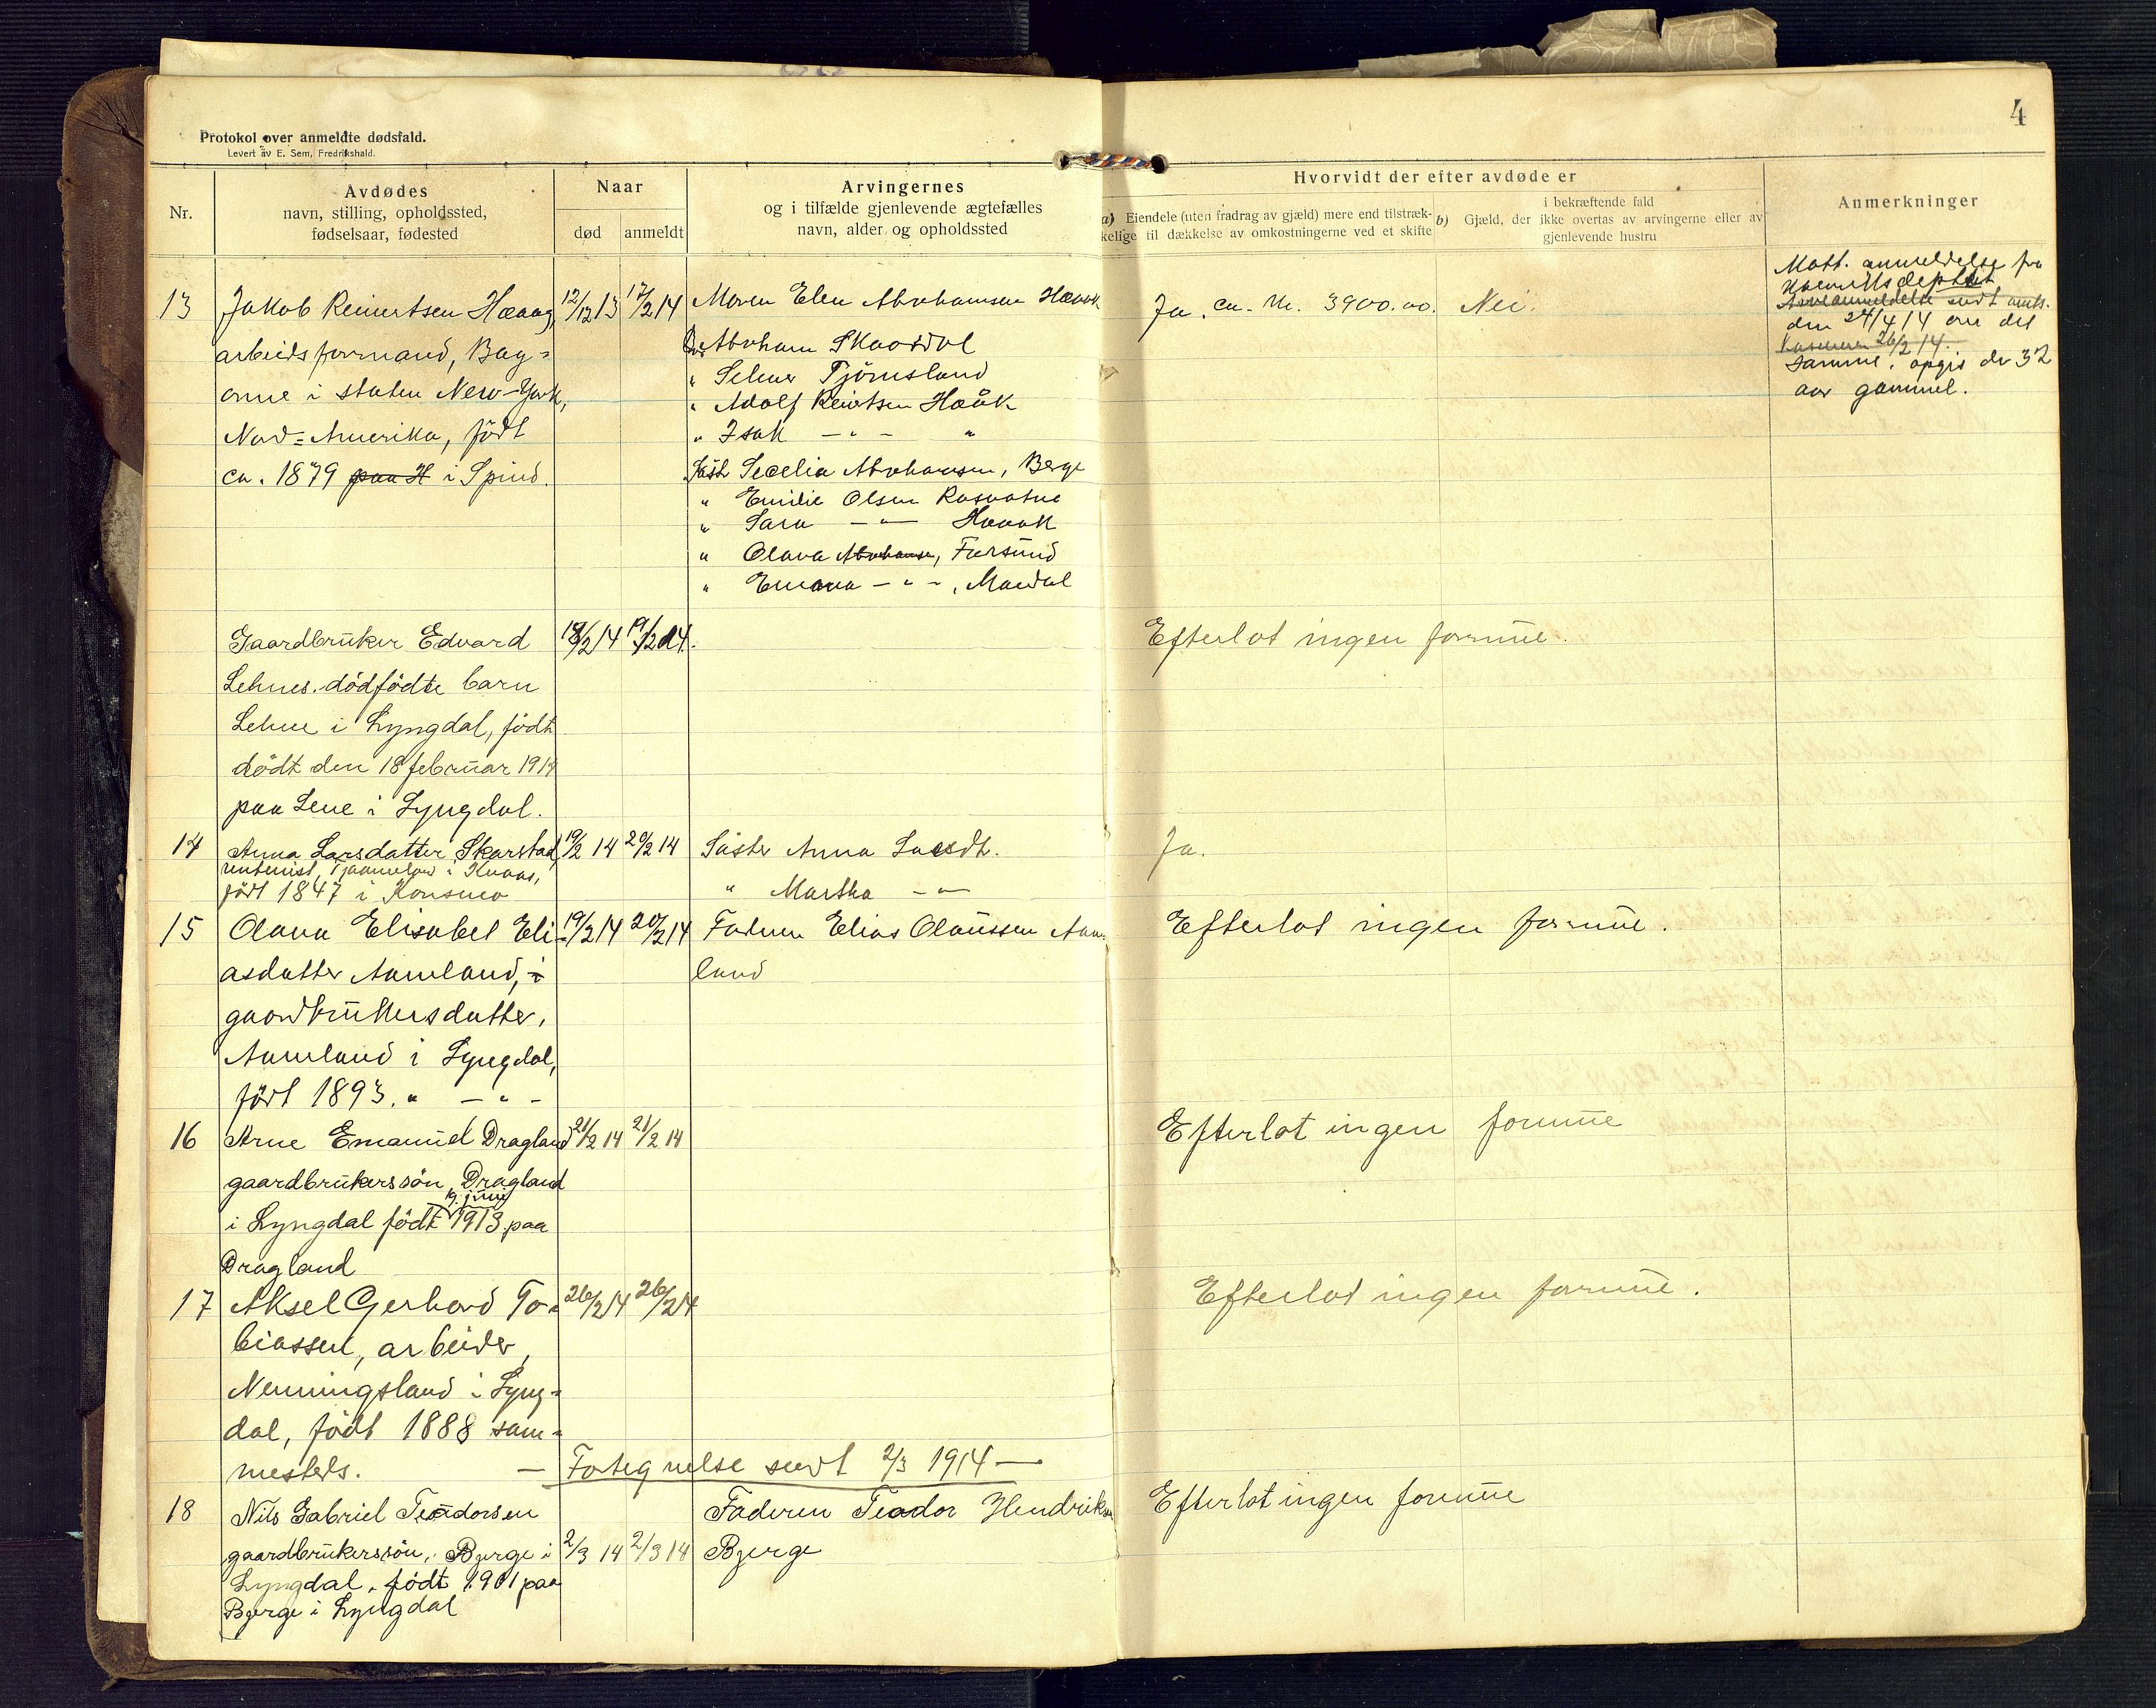 4
Protokol over anmeldte dødsfald.
Levert av E. Sem, Fredrikshald.
Nr.
Avdødes
navn, stilling, opholdssted,
fødselsaar, fødested
Naar
død anmeldt
Arvingernes
og i tilfælde gjenlevende ægtefælles
navn, alder og opholdssted
Hvorvidt der efter avdøde er
a) Eiendele (uten fradrag av gjæld) mere end tilstræk-
kelige til dækkelse av omkostningerne ved et skifte
i bekræftende fald
b) Gjæld, der ikke overtas av arvingerne eller av
gjenlevende hustru
Anmerkninger
13 Jakob Reinertsen Haaag, 12/12 13 17/2 14 Moren Elen Abrahamsen Haaak Ja, ca. Kr. 3900.00. Nei.
arbeidsformand, Bay=
onne i staten New-York,
Nord=Amerika, født
ca. 1879 paa H i Spind.
Abraham Skaardal
" Selmer Tjömsland
" Adolf Reiertsen Haåk
" Isak - " - "
Søst. Secelia Abrahamsen, Berge
" Emilie Olsen Rasvatne
" Sara - " - Haaak
" Olava Abrahamsen, Farsund
" - " - , Mandal
Mott. anmeldelse fra
den 24/4 14 om det
26/2 14.
samme, opgis dr 32
aar gammel.
Gaardbruker Edvard 18/2 14 19/2 14. Efterlot ingen formue.
Lehnes dödfödte barn
Lehne i Lyngdal, födt
dödt den 18 februar 1914
paa Lene i Lyngdal.
14 Anna Larsdatter Skarstad, 19/2 14 20/2 14 Søster Anna Larsdt. Ja.
rentenist, i Kvaas,
født 1847 i Konsmo
" Martha - " -
15 Olava Elisabet Eli- 19/2 14 20/2 14 Faderen Elias Olaussen Aam- Efterlot ingen formue.
asdatter Aamland, i
land
gaardbrukersdatter,
Aamland i Lyngdal,
født 1893. " - " -
16 Arne Emanuel Dragland 21/2 14 21/2 14 Efterlot ingen formue
gaardbrukerssön, Dragland
19. juni
i Lyngdal födt 1913 paa
Dragland
17 Aksel Gerhard To- 26/2 14 26/2 14 Efterlot ingen formue.
biassen, arbeider,
Nenningsland i Lyng=
dal, født 1888 sam=
mesteds. — Fortegnelse sendt 2/3 1914 —
18 Nils Gabriel Teodorsen Faderen Teodor Hendriksen Efterlot ingen formue
gaardbrukerssön, Bjerge i 2/3 14 2/3 14 Bjerge
Lyngdal, födt 1901 paa
Bjerge i Lyngdal